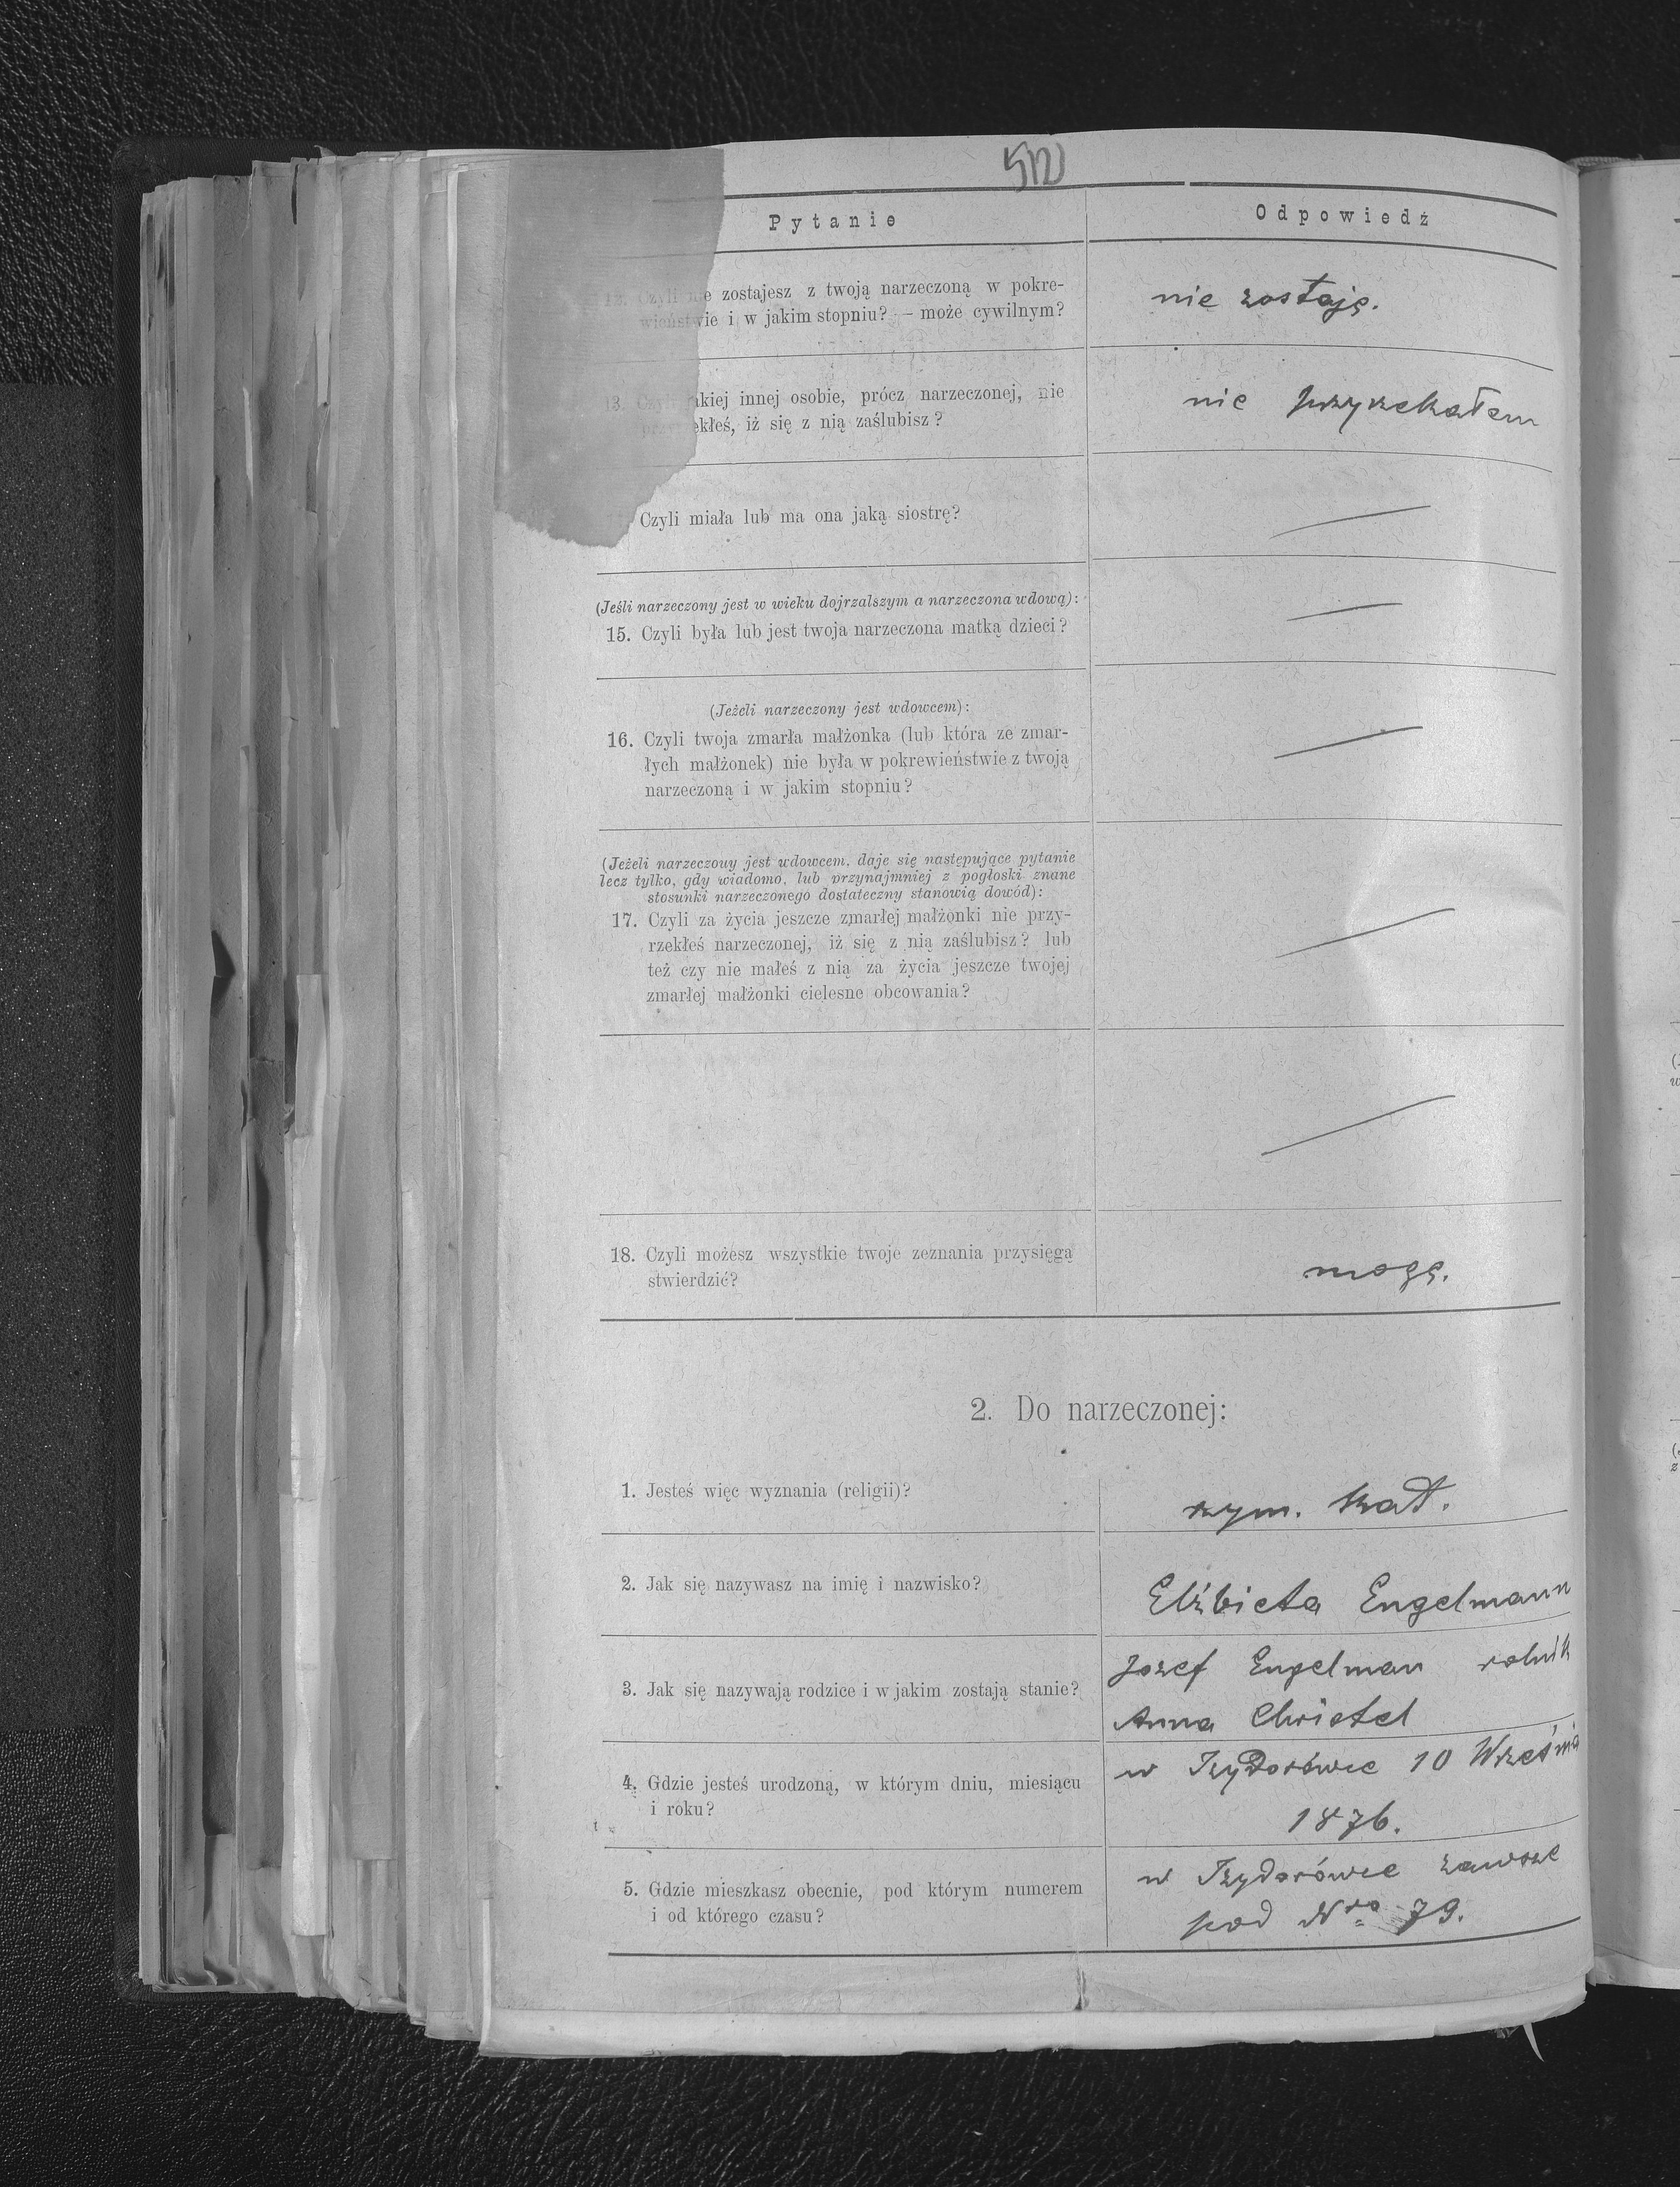 512
Pytanie
Odpowiedź
12. Czyli nie zostajesz z twoją narzeczoną w pokre-
wieństwie i w jakim stopniu? — może cywilnym?
nie zostaję.
13. Czyli jakiej innej osobie, prócz narzeczonej, nie
przyrzekłeś, iż się z nią zaślubisz?
nie przyrzekałem
Czyli miała lub ma ona jaką siostrę?
(Jeśli narzeczony jest w wieku dojrzalszym a narzeczona wdową):
15. Czyli była lub jest twoja narzeczona matką dzieci?
(Jeżeli narzeczony jest wdowcem):
16. Czyli twoja zmarła małżonka (lub która ze zmar-
łych małżonek) nie była w pokrewieństwie z twoją
narzeczoną i w jakim stopniu?
(Jeżeli narzeczony jest wdowcem, daje się następujące pytanie
lecz tylko, gdy wiadomo, lub przynajmniej z pogłoski znane
stosunki narzeczonego dostateczny stanowią dowód):
17. Czyli za życia jeszcze zmarłej małżonki nie przy-
rzekłeś narzeczonej, iż się z nią zaślubisz? lub
też czy nie małeś z nią za życia jeszcze twojej
zmarłej małżonki cielesne obcowania?
18. Czyli możesz wszystkie twoje zeznania przysięgą
stwierdzić?
mogę.
2. Do narzeczonej:
1. Jesteś więc wyznania (religii)?
rzym. kat.
2. Jak się nazywasz na imię i nazwisko?
Elżbieta Engelmann
3. Jak się nazywają rodzice i w jakim zostają stanie?
Jozef Engelman rolnik
Anna Christel
4. Gdzie jesteś urodzoną, w którym dniu, miesiącu
i roku?
w Izydorówce 10 Wrześnią
1876.
5. Gdzie mieszkasz obecnie, pod którym numerem
i od którego czasu?
w Izydorówce zawsze
pod Nro 79.